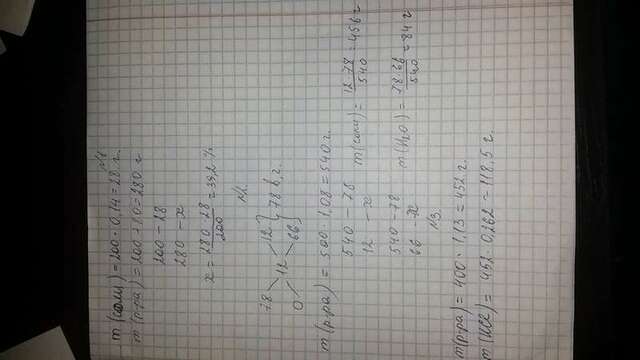 №1.
m(соли) = 200 · 0,14 = 28 г.
m(р-ра) = 200 + 80 = 280 г
200 – 28
280 – x
x = 280·28 / 200 = 39,2 %
№2.
78 12
12 } 78 в.г.
0 66
m(р-ра) = 500 · 1,08 = 540 г.
540 – 78
12 – x
m(соли) = 12·78 / 540 = 456 г
540 – 78
66 – x
m(H₂O) = 78·66 / 540 = 84 г
№3.
m(р-ра) = 400 · 1,13 = 452 г.
m(HCl) = 452 · 0,262 = 118,5 г.